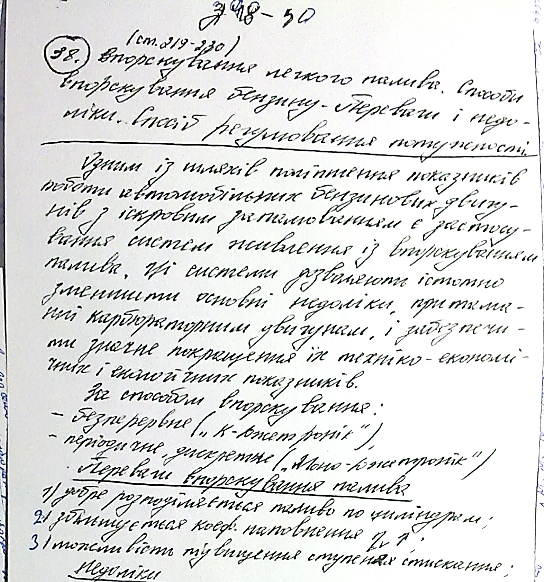 38-50
(ст. 219-230)
38. Впорскування легкого палива. Способи
впорскування бензину. Переваги і недо-
ліки. Спосіб регулювання потужності.
Одним із шляхів поліпшення показників
роботи автомобільних бензинових двигу-
нів з іскровим запалюванням є застосу-
вання систем живлення із впорскуванням
палива. Ці системи дозволяють істотно
зменшити основні недоліки, притаман-
ні карбюраторним двигунам, і забезпечи-
ти значне покращення їх техніко-економі-
чних і екологічних показників.
За способом впорскування:
- безперервне („К-Джетронік")
- періодичне, дискретне („Моно-Джетронік")
Переваги впорскування палива
1) добре розподіляється паливо по циліндрам;
2) збільшується коеф. наповнення
3) можливість підвищення ступеня стискання;
Недоліки